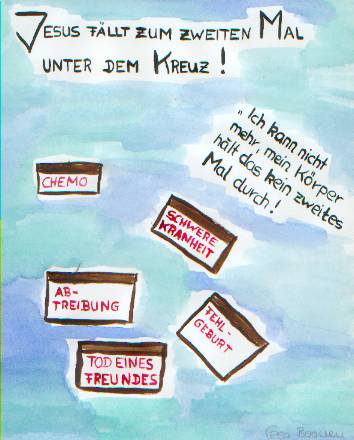 JESUS FÄLLT ZUM ZWEITEN MAL
UNTER DEM KREUZ!
„Ich kann nicht
mehr, mein Körper
hält das kein zweites
Mal durch!
CHEMO
SCHWERE
KRANHEIT
AB-
TREIBUNG
FEHL-
GEBURT
TOD EINES
FREUNDES